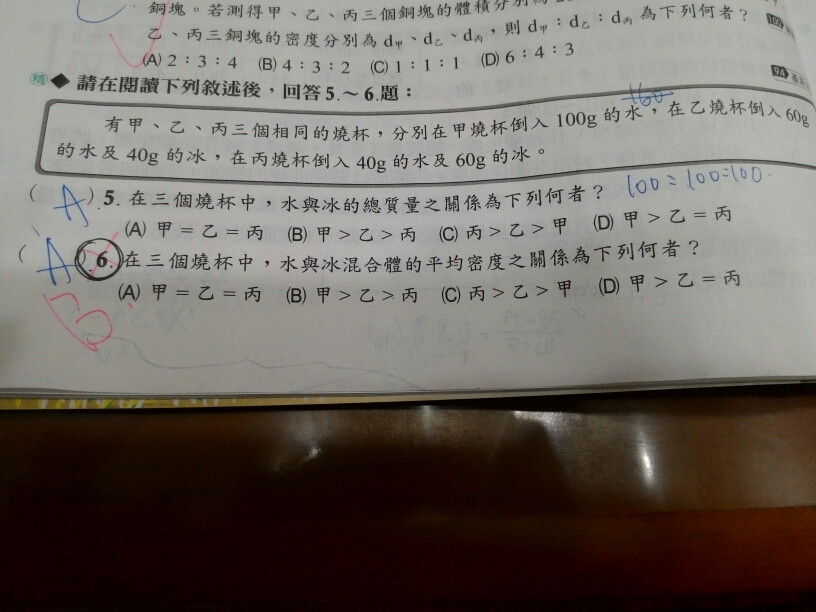 銅塊。若測得甲、乙、丙三個銅塊的體積分別為
乙、丙三銅塊的密度分別為 d甲、d乙、d丙,則 d甲:d乙:d丙 為下列何者?
(A) 2:3:4 (B) 4:3:2 (C) 1:1:1 (D) 6:4:3
精 ◆ 請在閱讀下列敘述後,回答5.~6.題:
160
有甲、乙、丙三個相同的燒杯,分別在甲燒杯倒入 100g 的水,在乙燒杯倒入 60g
的水及 40g 的冰,在丙燒杯倒入 40g 的水及 60g 的冰。
( A ) 5. 在三個燒杯中,水與冰的總質量之關係為下列何者? 100:100:100
(A) 甲=乙=丙 (B) 甲>乙>丙 (C) 丙>乙>甲 (D) 甲>乙=丙
( A ) 6. 在三個燒杯中,水與冰混合體的平均密度之關係為下列何者?
B
(A) 甲=乙=丙 (B) 甲>乙>丙 (C) 丙>乙>甲 (D) 甲>乙=丙